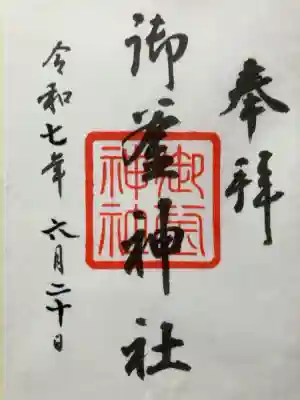 奉拝
御釜神社
御釜神社
令和七年六月二十日